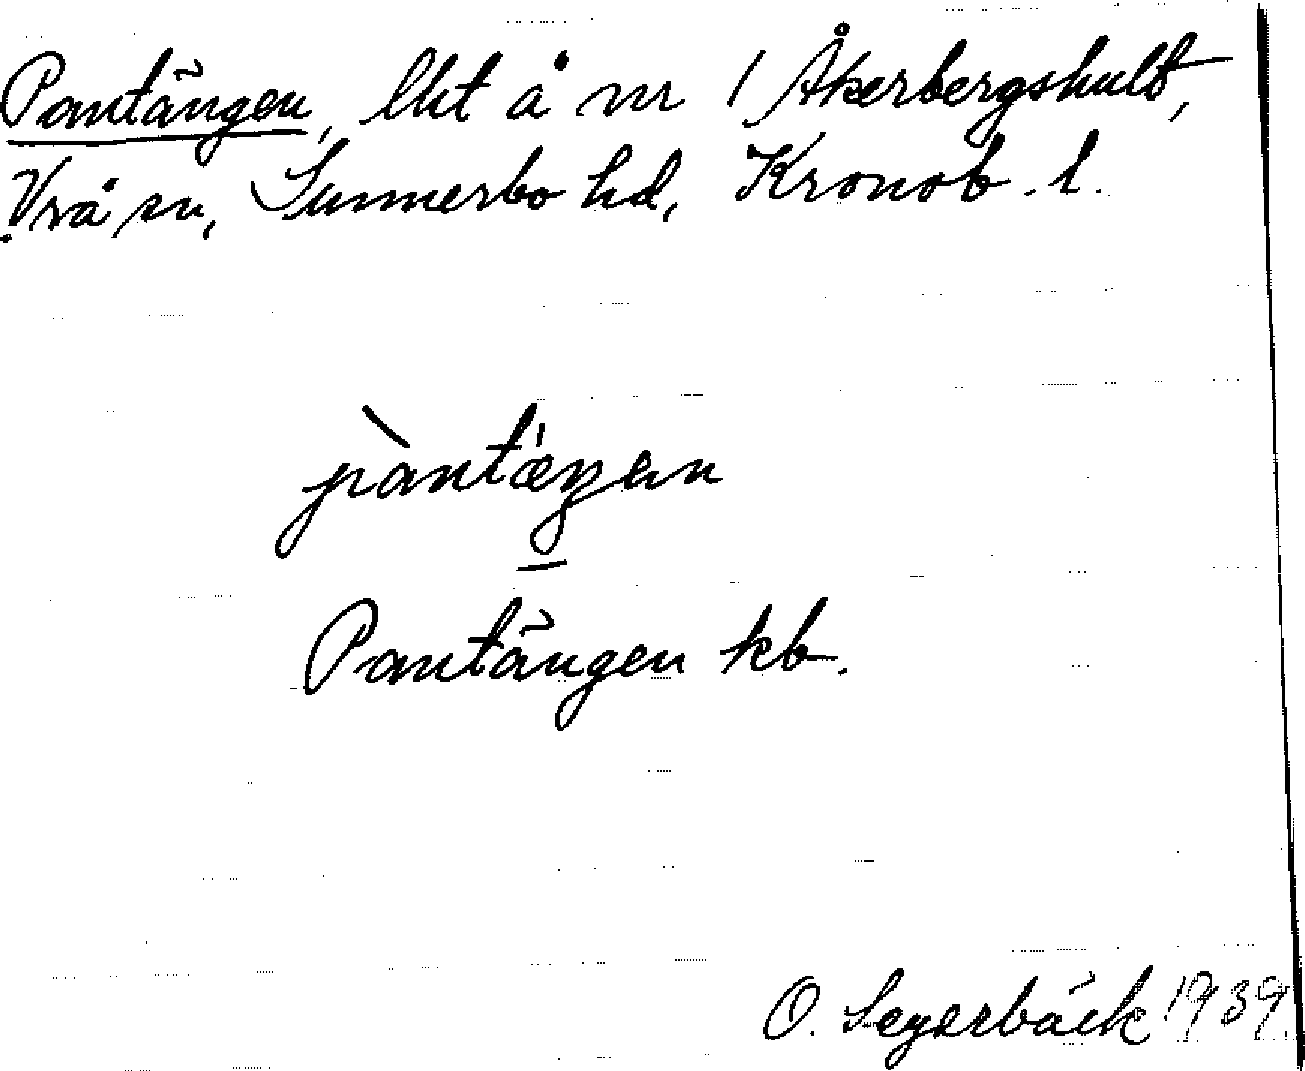 Pantängen, lht å nr 1 Åkerbergshult,
Vrå sn, Sunnerbo hd, Kronob. l.
pàntæ̀ŋən
Pantängen kb.
O. Segerbäck 1939